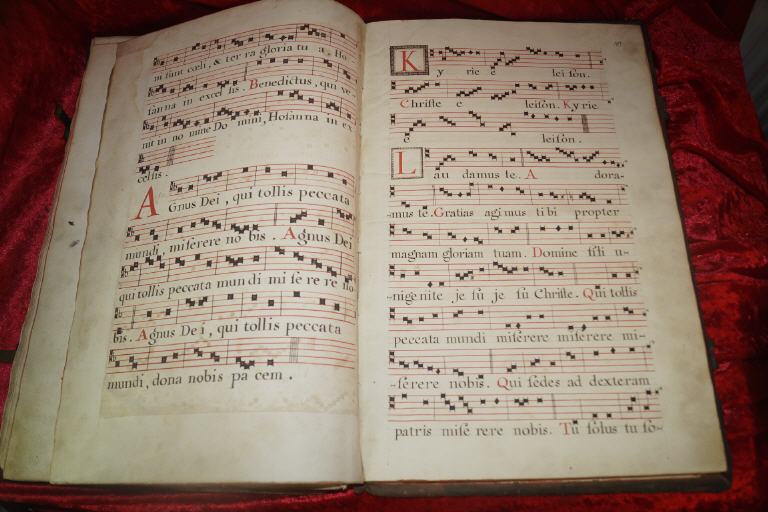 ni sunt cœli, & ter ra gloria tu a. Ho
sanna in excel sis. Benedictus, qui ve-
nit in no mine Do mini, Hosanna in ex
celsis.
AGnus Dei, qui tollis peccata
mundi, miserere no bis. Agnus Dei
qui tollis peccata mun di mi se re re no
bis. Agnus De i, qui tollis peccata
mundi, dona nobis pa cem.
Ky rie e lei son.
Christe e leison. Kyrie
e leison.
Lau damus te. A dora-
-mus te. Gratias agi mus ti bi propter
magnam gloriam tuam. Domine fili u-
-nige nite je su je su Christe. Qui tollis
peccata mundi miserere miserere mi-
-serere nobis. Qui sedes ad dexteram
patris mise rere nobis. Tu solus tu so-